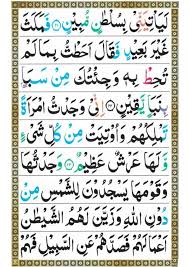 لَيَاْتِيَنِّيْ بِسُلْطٰنٍ مُّبِيْنٍ ﴿۲۱﴾ فَمَكَثَ
غَيْرَ بَعِيْدٍ فَقَالَ اَحَطْتُّ بِمَا لَمْ
تُحِطْ بِهٖ وَجِئْتُكَ مِنْ سَبَاٍۭ
بِنَبَاٍ يَّقِيْنٍ ﴿۲۲﴾ اِنِّيْ وَجَدْتُّ امْرَاَةً
تَمْلِكُهُمْ وَاُوْتِيَتْ مِنْ كُلِّ شَيْءٍ
وَّلَهَا عَرْشٌ عَظِيْمٌ ﴿۲۳﴾ وَجَدْتُّهَا
وَقَوْمَهَا يَسْجُدُوْنَ لِلشَّمْسِ مِنْ
دُوْنِ اللّٰهِ وَزَيَّنَ لَهُمُ الشَّيْطٰنُ
اَعْمَالَهُمْ فَصَدَّهُمْ عَنِ السَّبِيْلِ فَهُمْ